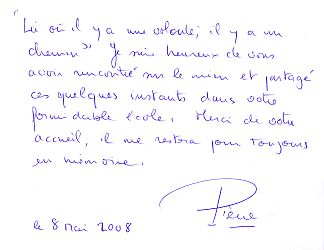 "Là où il y a une volonté, il y a un
chemin" Je suis heureux de vous
avoir rencontré sur le mien et partagé
ces quelques instants dans votre
formidable école. Merci de votre
accueil, il me restera pour toujours
en mémoire.
Pierre
le 8 mai 2008